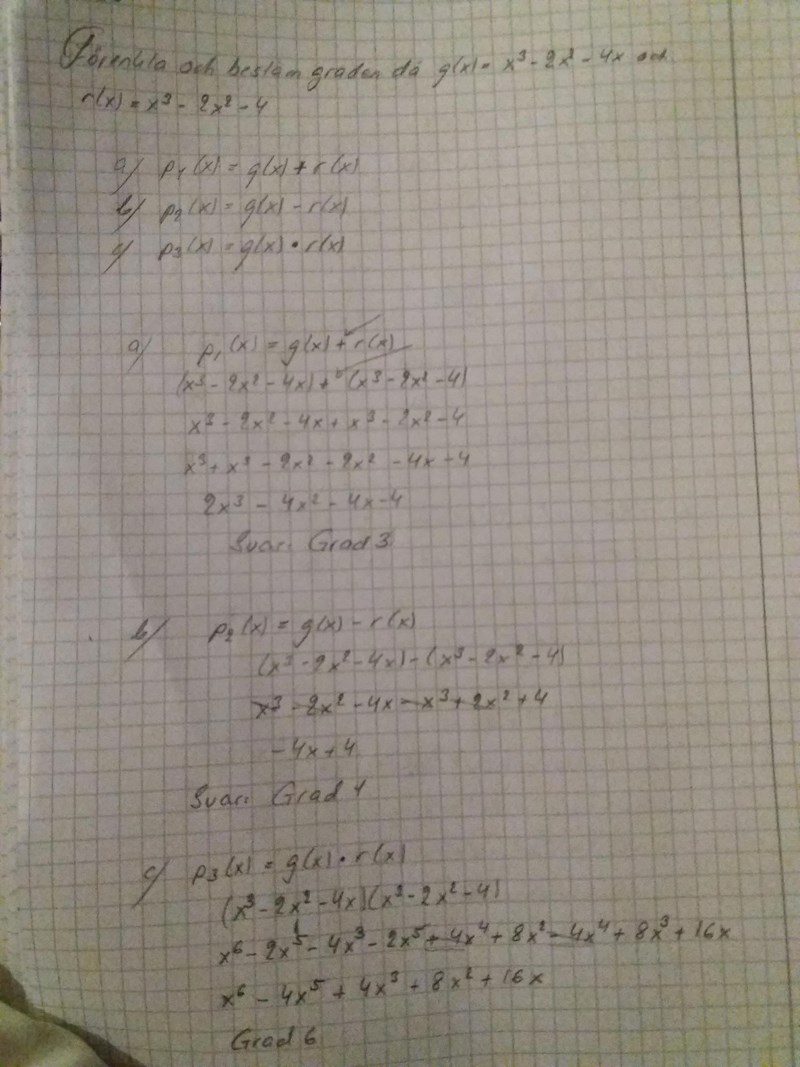 Förenkla och bestäm graden då g(x) = x³ - 2x² - 4x och
r(x) = x³ - 2x² - 4
a) p₁(x) = g(x) + r(x)
b) p₂(x) = g(x) - r(x)
c) p₃(x) = g(x) • r(x)
a) p₁(x) = g(x) + r(x)
(x³ - 2x² - 4x) + (x³ - 2x² - 4)
x³ - 2x² - 4x + x³ - 2x² - 4
x³ + x³ - 2x² - 2x² - 4x - 4
2x³ - 4x² - 4x - 4
Svar: Grad 3
b) p₂(x) = g(x) - r(x)
(x³ - 2x² - 4x) - (x³ - 2x² - 4)
x³ - 2x² - 4x - x³ + 2x² + 4
-4x + 4
Svar: Grad 1
c) p₃(x) = g(x) • r(x)
(x³ - 2x² - 4x)(x³ - 2x² - 4)
x⁶ - 2x⁵ - 4x³ - 2x⁵ + 4x⁴ + 8x² - 4x⁴ + 8x³ + 16x
x⁶ - 4x⁵ + 4x³ + 8x² + 16x
Grad 6